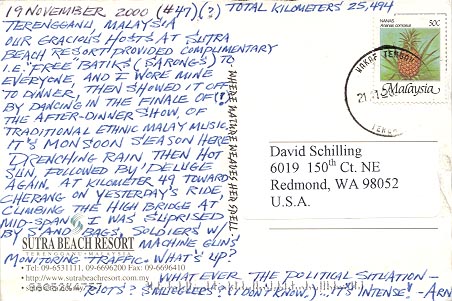 19 NOVEMBER, 2000 (#47)(?) TOTAL KILOMETERS 25,494
TERENGGANU, MALAYSIA
OUR GRACIOUS HOSTS AT SUTRA
BEACH RESORT PROVIDED COMPLIMENTARY
I.E. "FREE" BATIKS (SARONGS) TO
EVERYONE, AND I WORE MINE
TO DINNER, THEN SHOWED IT OFF
BY DANCING IN THE FINALE OF (!)
THE AFTER-DINNER SHOW, OF
TRADITIONAL ETHNIC MALAY MUSIC.
IT'S MONSOON SEASON HERE
DRENCHING RAIN THEN HOT
SUN, FOLLOWED BY DELUGE
AGAIN. AT KILOMETER 49 TOWARD
CHERANG ON YESTERDAY'S RIDE,
CLIMBING THE HIGH BRIDGE AT
MID-SPAN I WAS SUPRISED
BY SAND BAGS, SOLDIERS W/
MACHINE GUNS
MONITORING TRAFFIC. WHAT'S UP?
WHATEVER THE POLITICAL SITUATION -
RIOTS? SMUGGLERS? (I DON'T KNOW,) ...IT'S INTENSE! - ARN
SUTRA BEACH RESORT
TERENGGANU • MALAYSIA
• Tel: 09-6531111, 09-6696200 Fax: 09-6696410
• http://www.sutrabeachresort.com.my
WHERE NATURE WEAVES HER SPELL
NANAS
Ananas comosus
50¢
Malaysia
WAKAF TENGAH
David Schilling
6019 150th Ct. NE
Redmond, WA 98052
U.S.A.